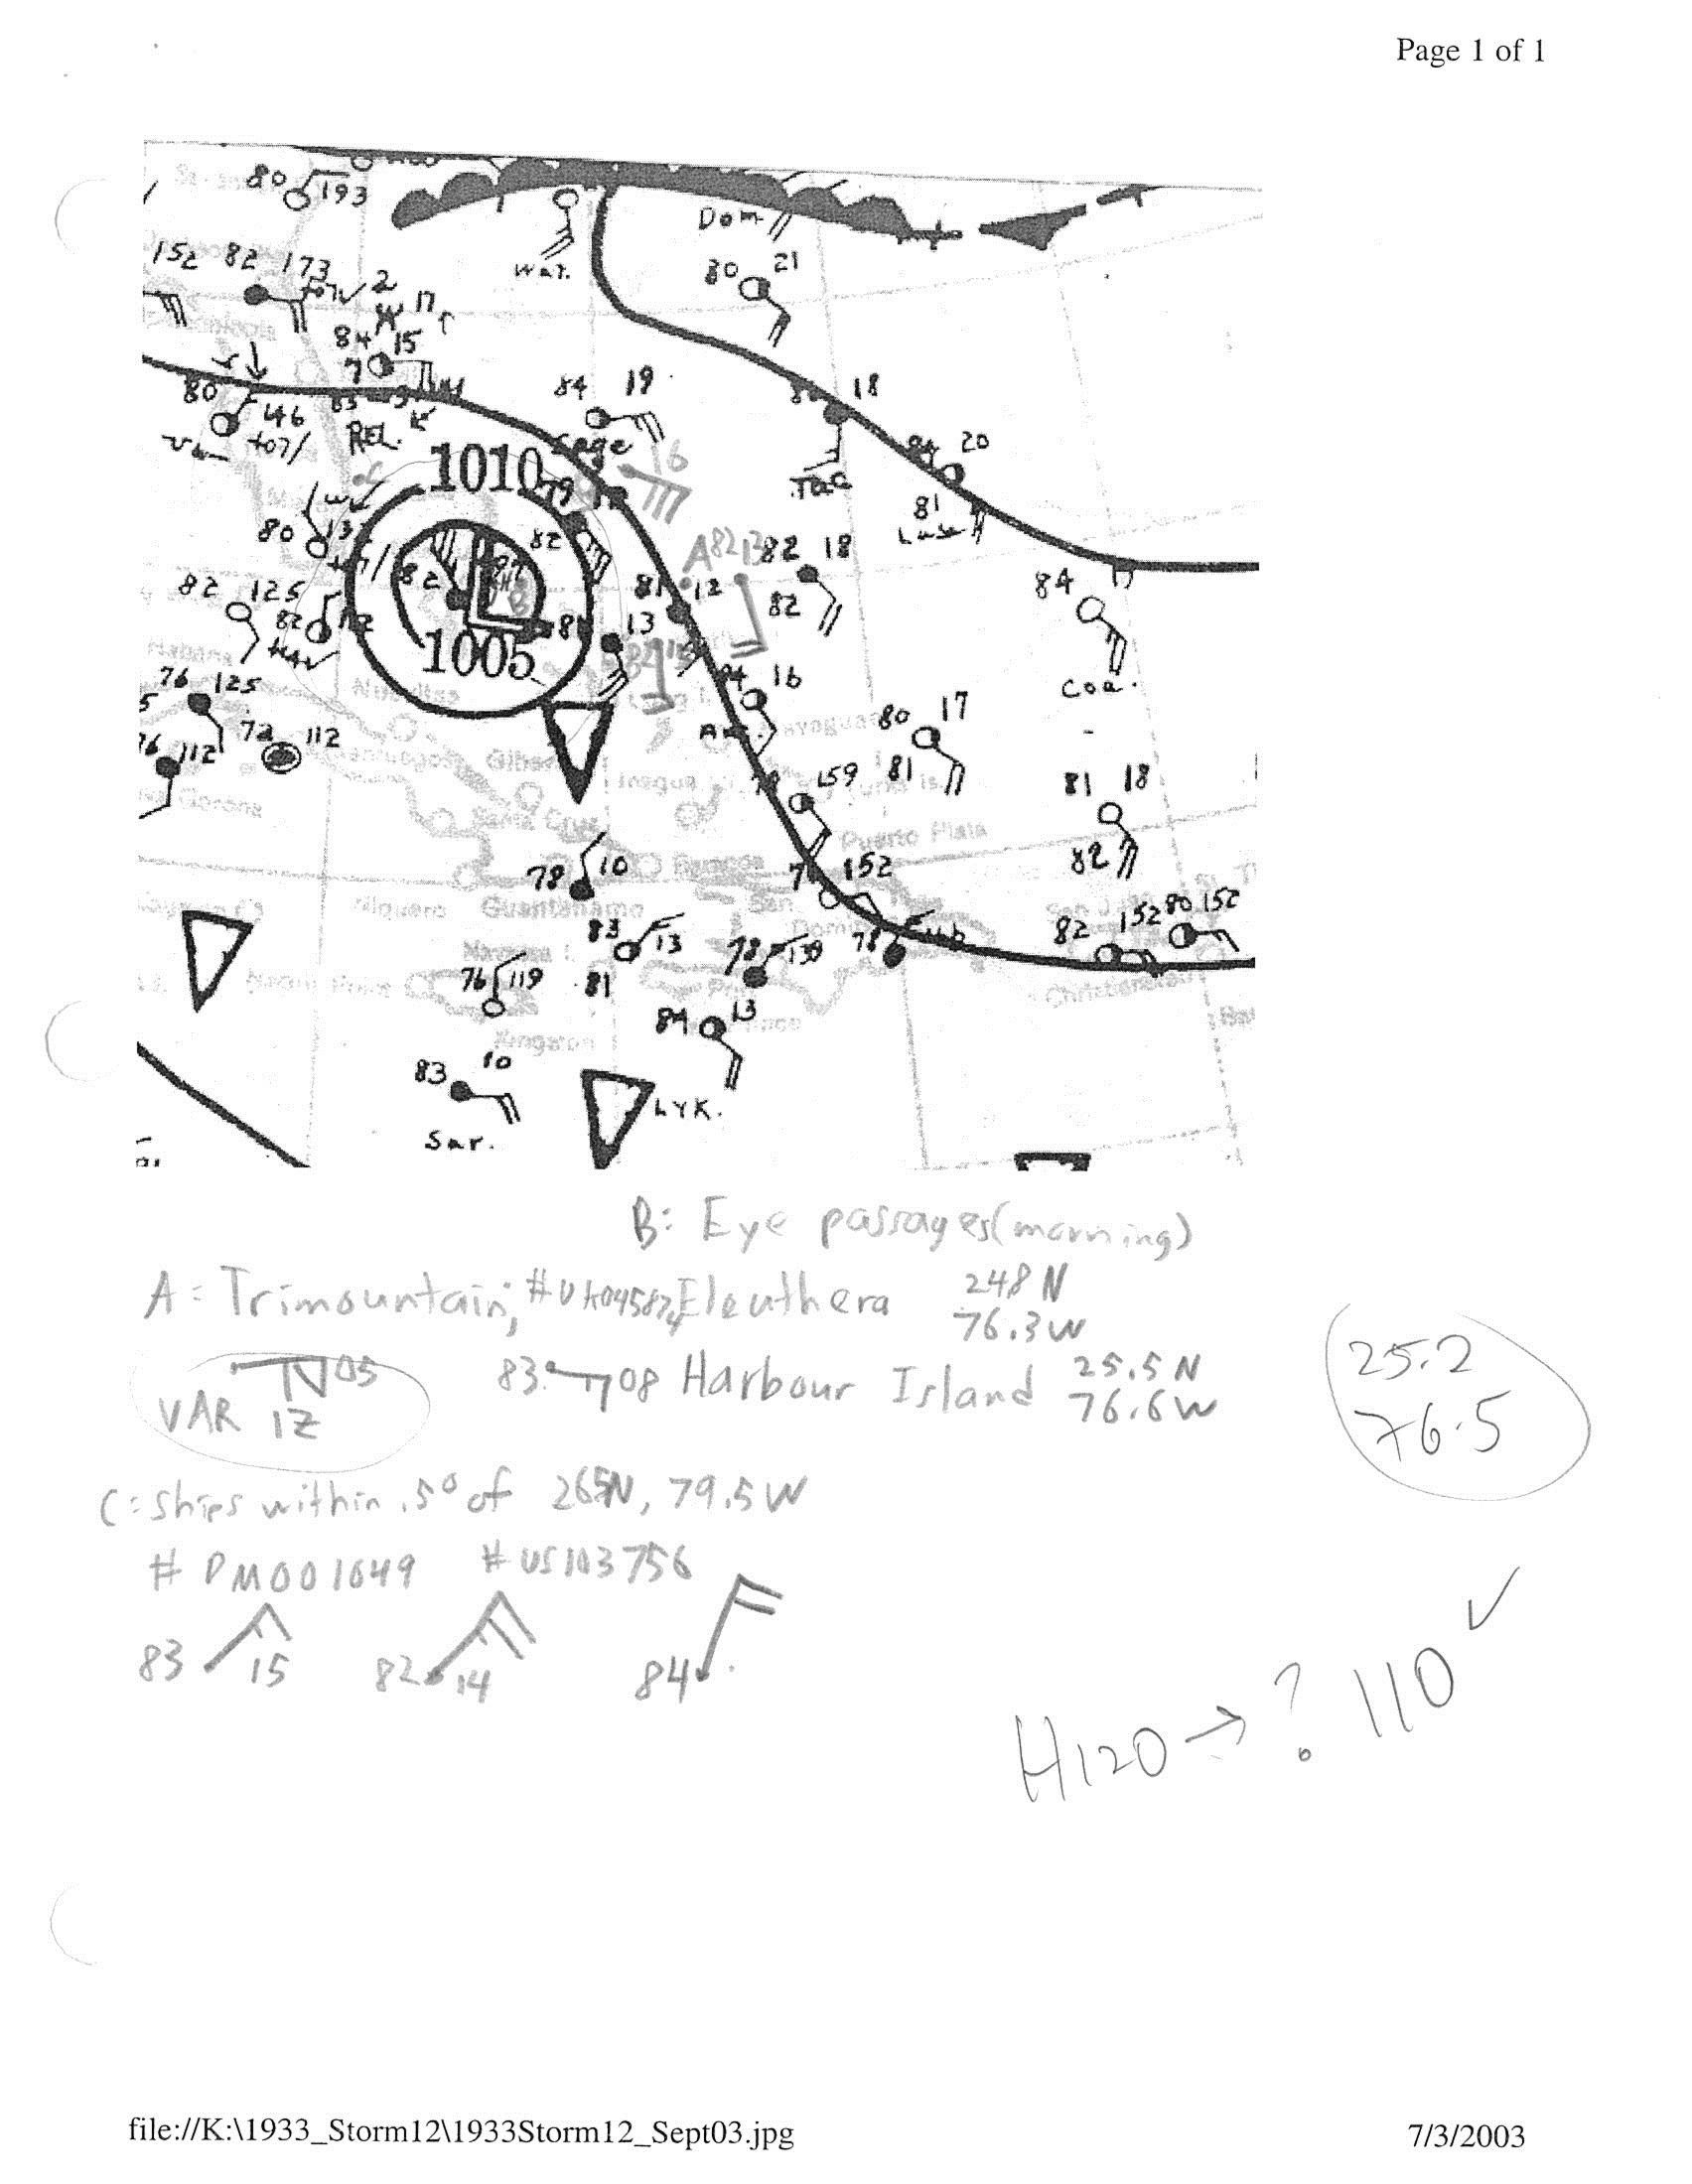 Page 1 of 1
80 193
Dom.
152 82 173
War.
80 21
2
17
84 15
7
84 19
18
80
146
+07/
REL.
20
81
1010
79
16
Tac
80
82
A 82 13 82 18
82 125
82
82
81 12
82
84
81
13
1005
76 125
16
Coa.
80 17
76 112
72 112
81
159
81 18
82
78 10
152
83 13
82 152 80 152
76 119
81
78 139
78
84 13
83 10
LYK.
Sar.
B: Eye passages (morning)
A = Trimountain; Eleuthera 248 N
76.3 W
05
VAR 12
83 08 Harbour Island 25.5 N
76.6 W
25.2
76.5
C = ships within .5° of 265N, 79.5 W
# DM001049 # US103756
83 15 82 14 84
H120 → ? 110 ✓
file://K:\1933_Storm12\1933Storm12_Sept03.jpg 7/3/2003